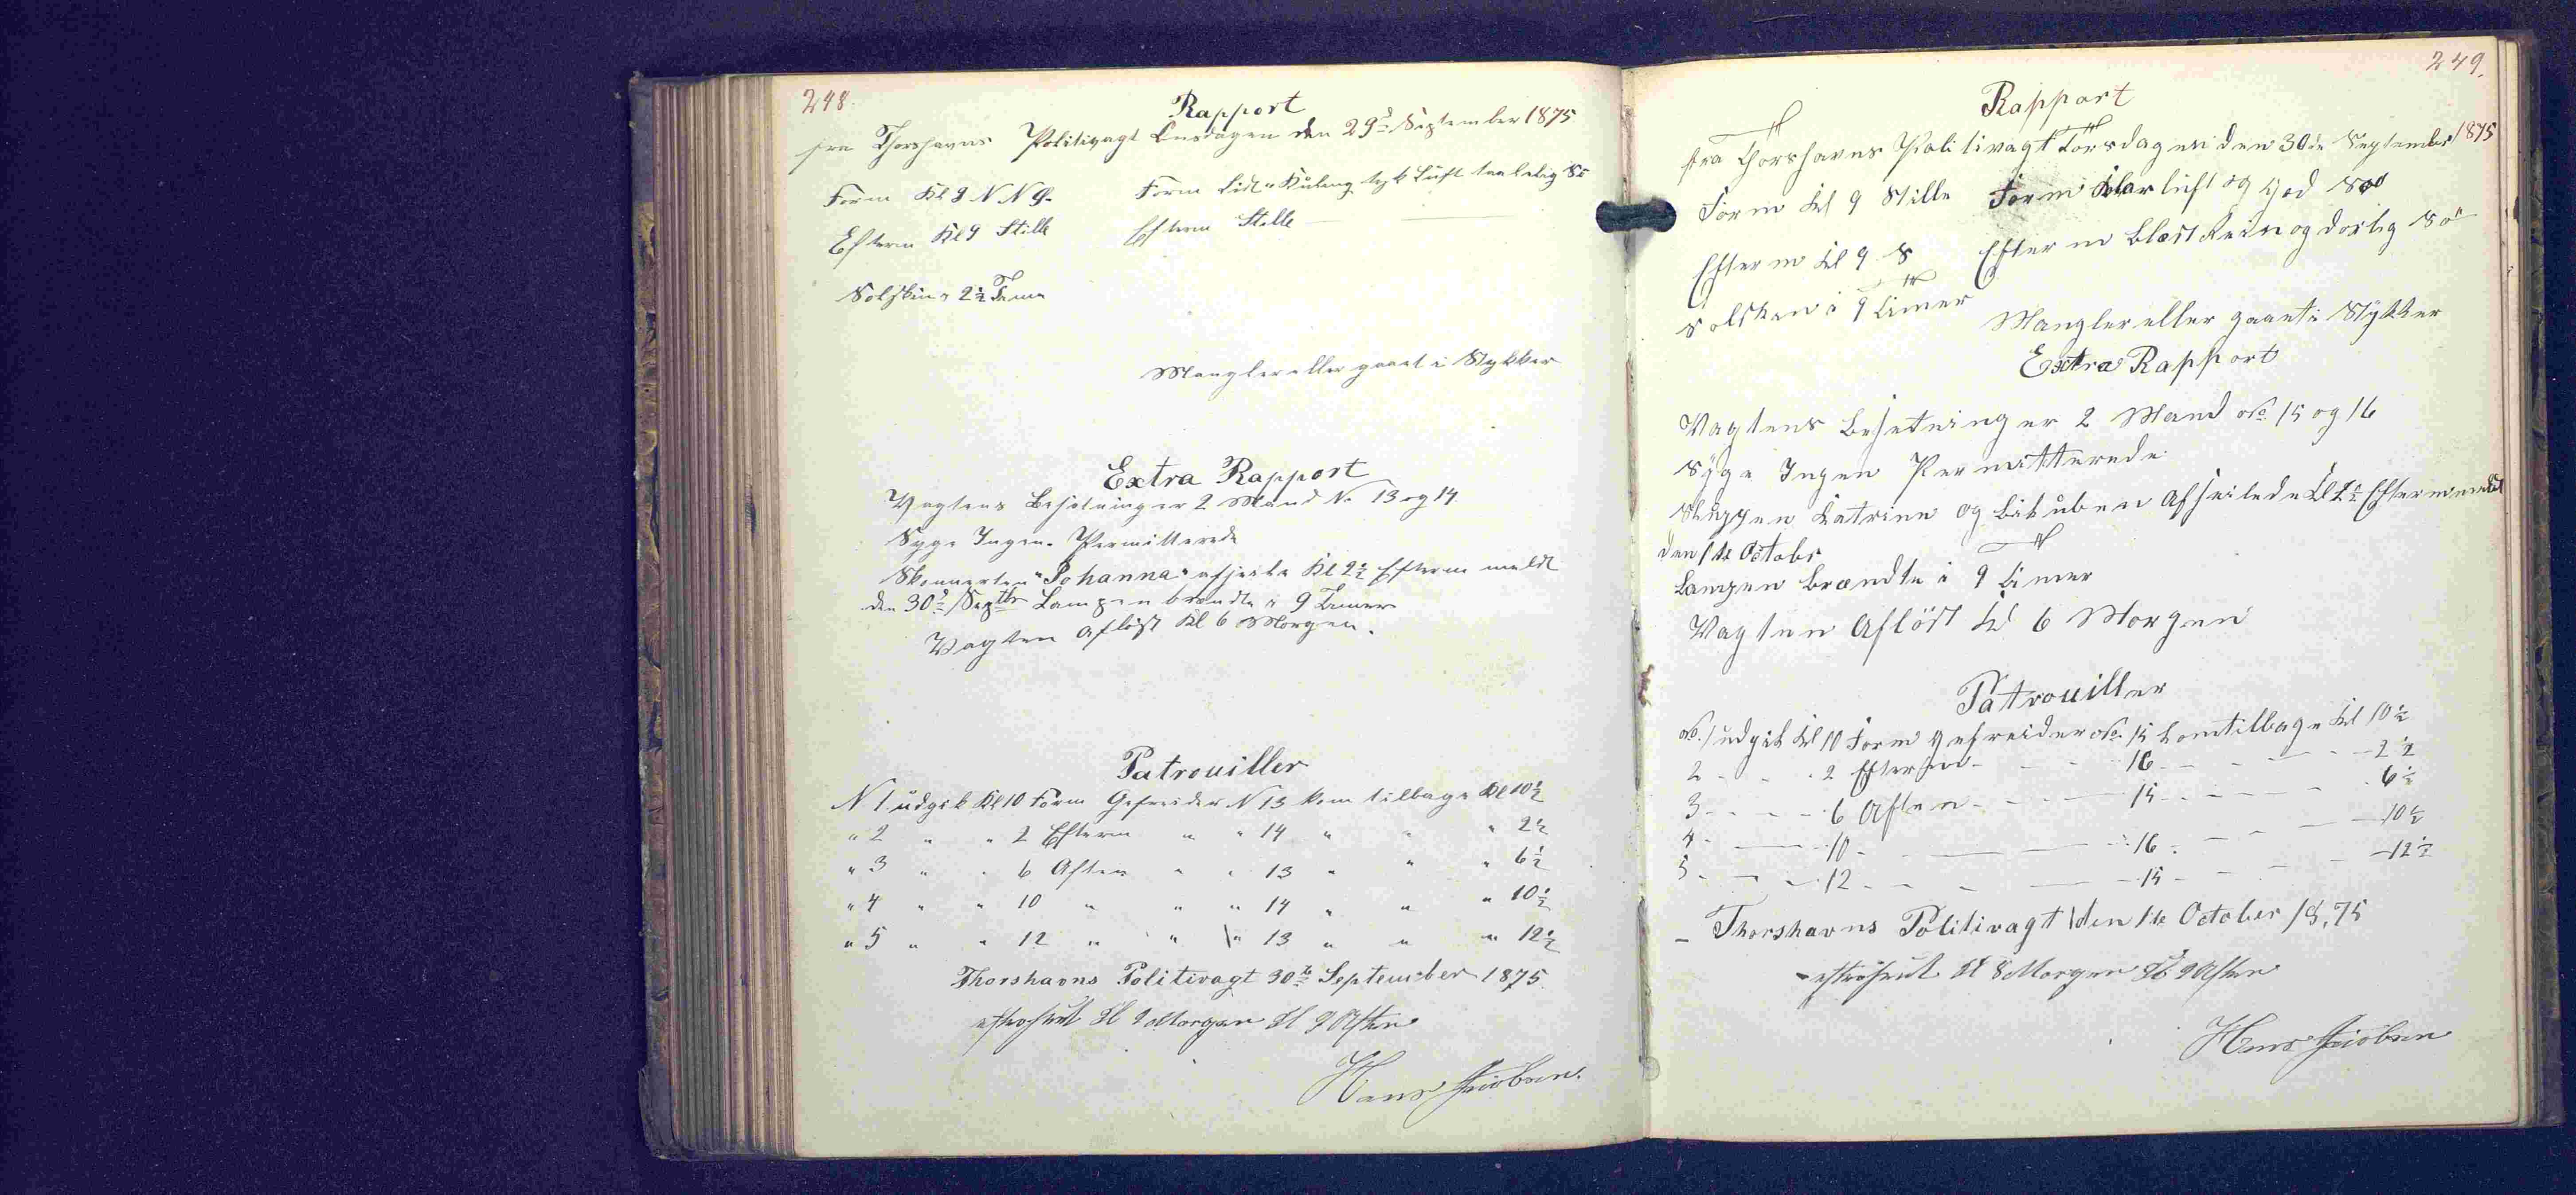 248.
Rapport
fra Thorshavns Politivagt Onsdagen den 29d September 1875
Form Kl 9 N N O. Form Lidt Kuling tyk Luft taalelig Sö
Efterm Kl 9 Stille Efterm Stille
Solskin i 2½ Time
Mangler eller gaaet i Stykker
Extra Rapport
Vagtens Besetninger 2 Mand No 13 og 14
Syge Ingen. Permitterede
Skonnerten "Johanna" afseile Kl 2½ Efterm meldt
den 30d Septbr Lampen brændte i 9 Timer
Vagten aflöst Kl 6 Morgen.
Patrouiller
N 1. udgik Kl 10 Form Gefreider N 13 kom tilbage Kl 10½
" 2 " " 2 Efterm " " 14 " " " 2½
" 3 " " 6 Aften " " 13 " " " 6½
" 4 " " 10 " " " 14 " " " 10½
" 5 " " 12 " " " 13 " " " 12½
Thorshavns Politivagt 30te September 1875.
Kl 9 Morgen Kl 9 Aften
Hans Jacobsen.
249.
Rapport
fra Thorshavns Politivagt Torsdagen den 30de September 1875
Form Kl 9 Stille Form Klar luft og god Söe
Efterm Kl 9 S Efterm blæst Rein og dorlig Sö
Solsken i 9 Timer
Mangler eller gaaet i Stykker
Extra Rapport
Vagtens besetninger 2 Mand No 15 og 16
Syge Ingen Permitterede
Sluppen Katrine og Bikuben Afseilede Kl 2½ Efterm meldt
den 1te Octobr
Lampen brændte i 9 Timer
Vagten Aflöst Kl 6 Morgen
Patrouiller
No. 1 udgik Kl 10 Form gefreider No. 15 kom tilbage Kl 10½
2 - - - 2 Efterm - - - 16 - - - - 2½
3 - - - 6 Aften - - - 15 - - - - 6½
4 - - - 10 - - - 16 - - - - 10½
5 - - - 12 - - - 15 - - - - 12½
Thorshavns Politivagt den 1te October 1875
Kl 8 Morgen Kl 9 Aften
Hans Jacobsen